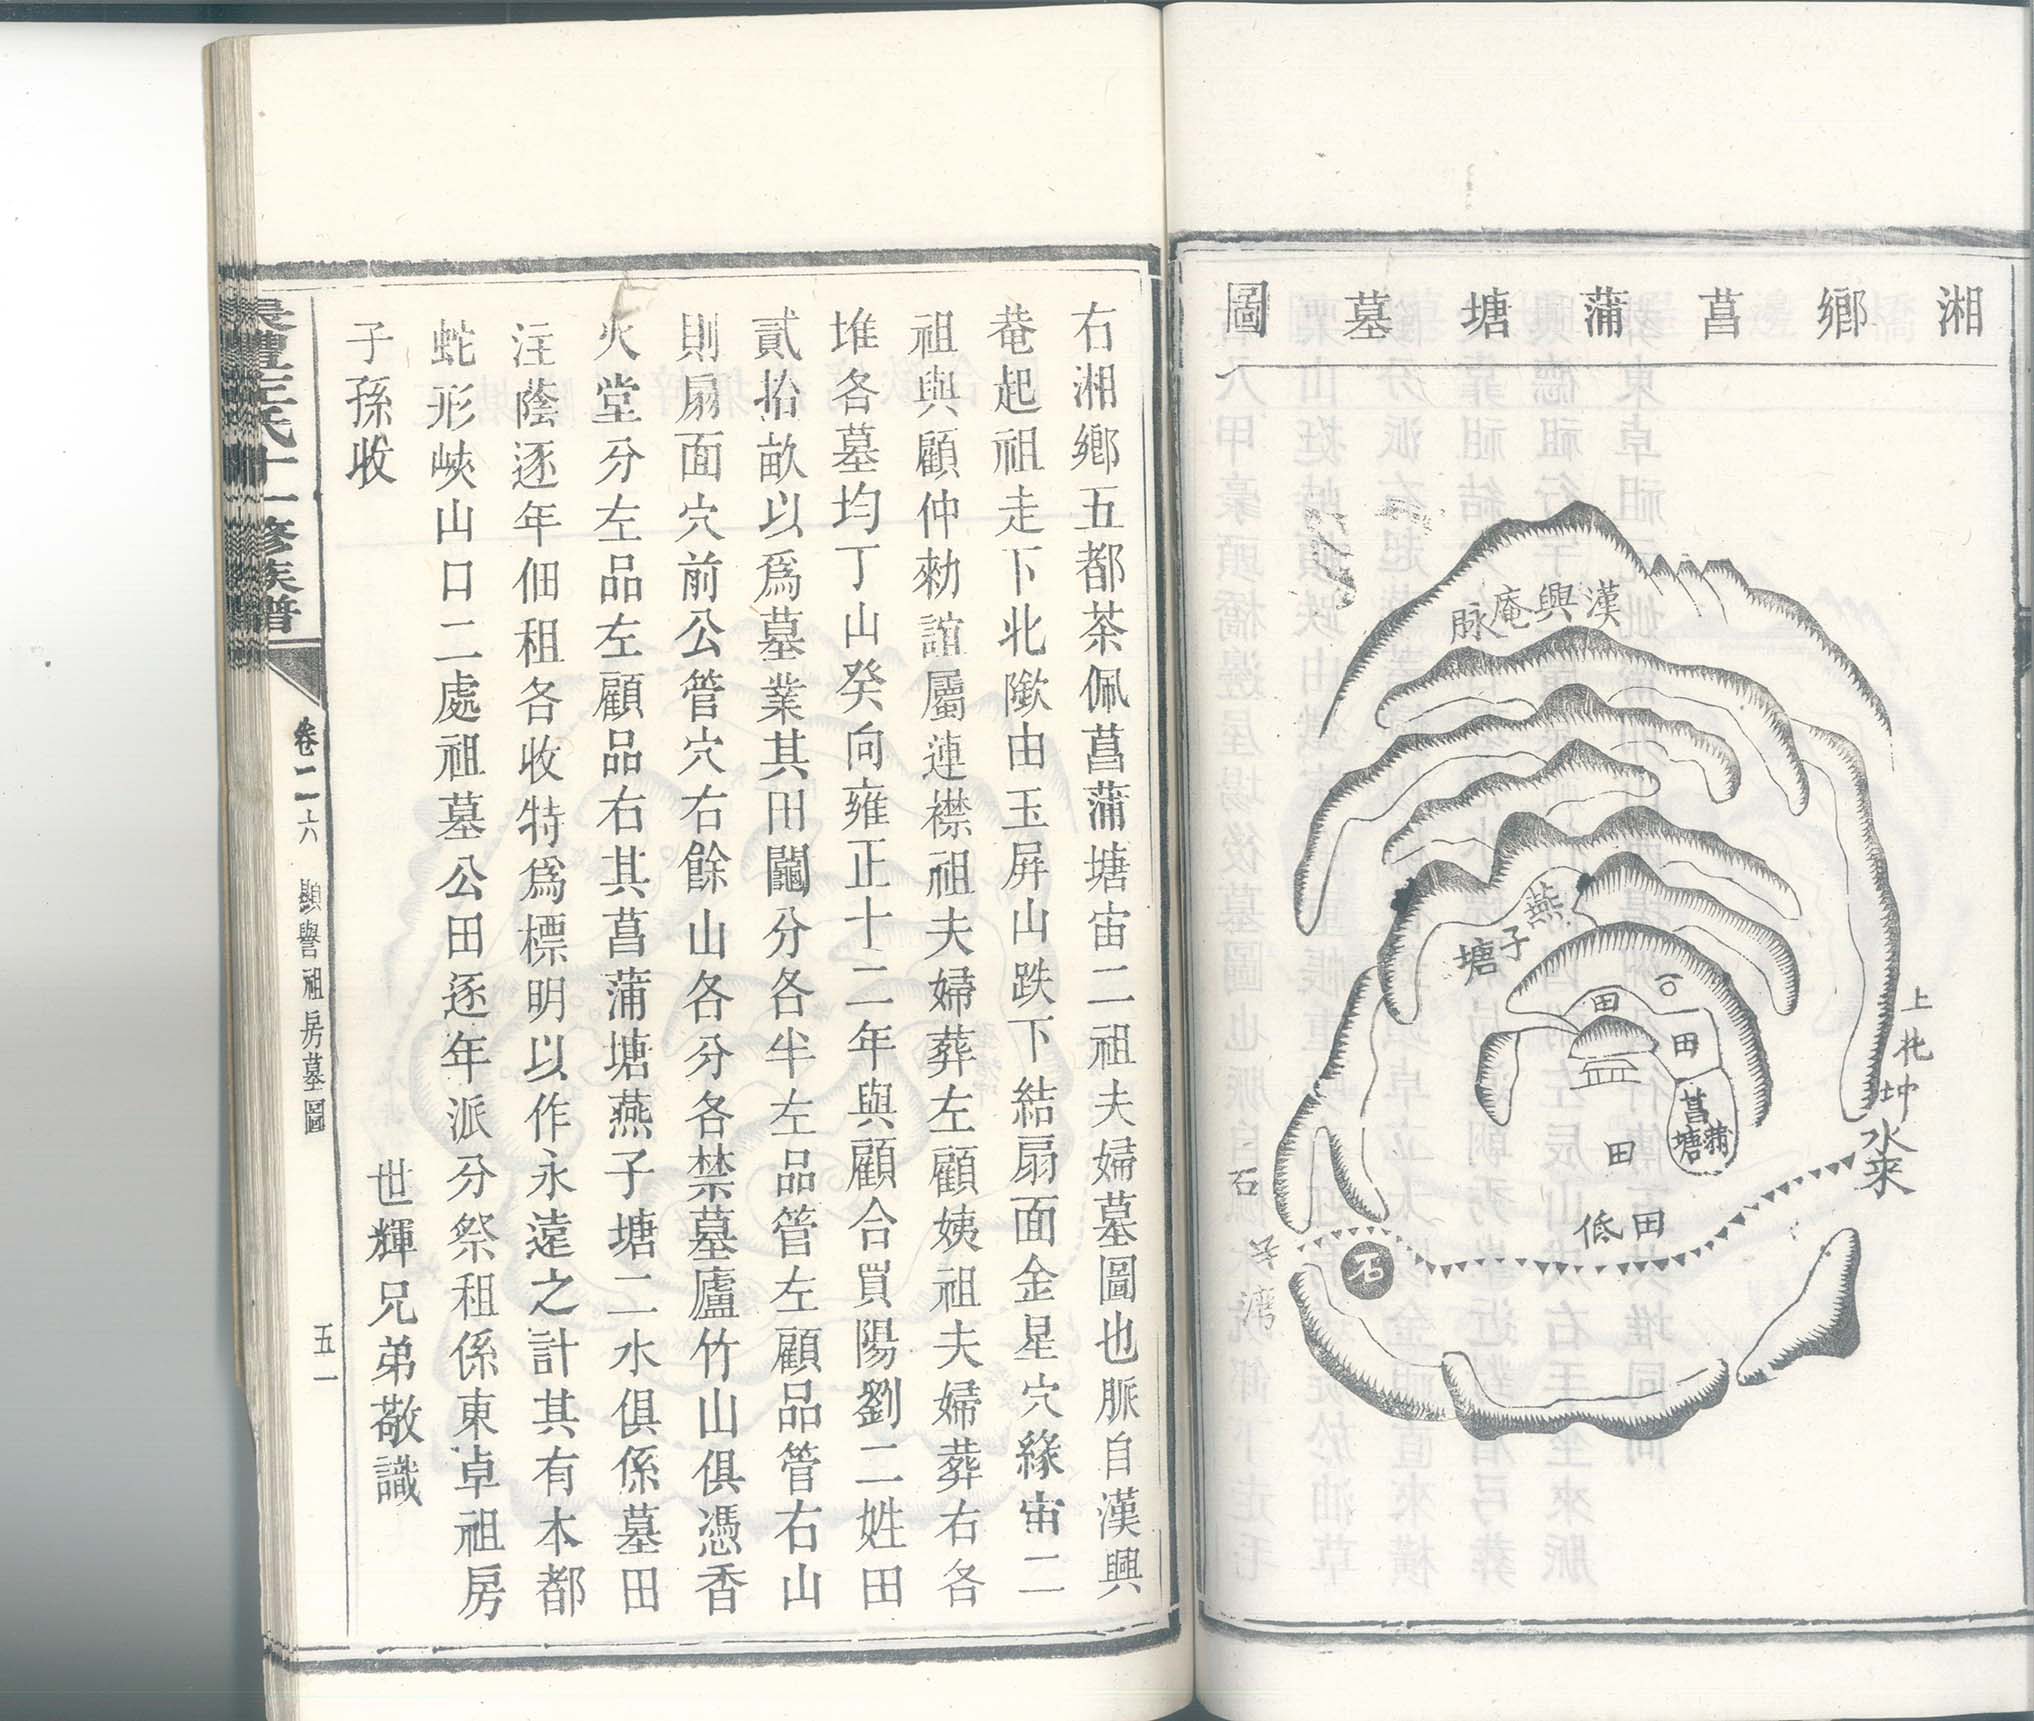 湘鄉菖蒲塘墓圖
漢興庵脉
燕子塘
田
田
菖蒲塘
田
低田
上托坤
水來
石
石子湾
右湘鄉五都茶佩菖蒲塘宙二祖夫婦墓圖也脈自漢興
菴起祖走下北歘由玉屏山跌下結扇面金星穴緣宙二
祖與顧仲勑誼屬連襟祖夫婦葬左顧姨祖夫婦葬右各
堆各墓均丁山癸向雍正十二年與顧合買陽劉二姓田
貳拾畝以爲墓業其田鬮分各半左品管左顧品管右山
則扇面穴前公管穴右餘山各分各禁墓廬竹山俱憑香
火堂分左品左顧品右其菖蒲塘燕子塘二水俱係墓田
注蔭逐年佃租各收特爲標明以作永遠之計其有本都
蛇形峽山口二處祖墓公田逐年派分祭租係東卓祖房
子孫收
世輝兄弟敬識
王氏十一修族譜
卷二六
顯譽祖房墓圖
五一